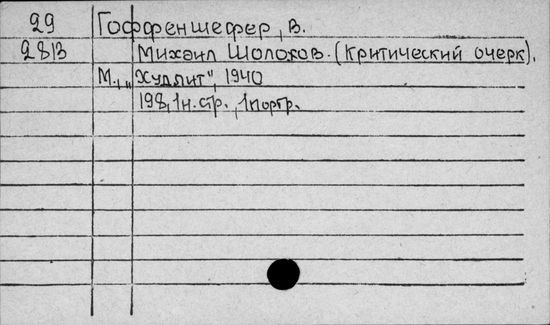 29 Гоффеншефер, В.
2813 Михаил Шолохов. (Критический очерк).
М., „Худлит", 1940
198, 1н.стр., 1портр.